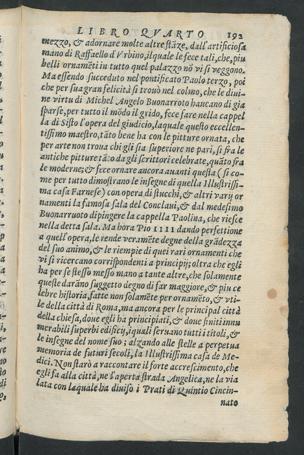 LIBRO QVARTO 192
mezzo, & adornare molte altre stāze, dall'artificiosa
mano di Raffaello d'Vrbino, ilquale le fece tali, che, piu
belli ornamēti in tutto quel palazzo nō vi si veggono.
Ma essendo succeduto nel pontificato Paolo terzo, poi
che per sua gran felicità si trouò nel colmo, che le diui-
ne virtu di Michel Angelo Buonarroto haueano di gia
sparse, per tutto il mōdo il grido, fece fare nella cappel
la di Sisto l'opera del giudicio, laquale questo eccellen-
tissimo maestro, tāto bene ha con le pitture ornata, che
per arte non troua chi gli sia superiore ne pari, si frà le
antiche pitture tāto da gli scrittori celebrate, quāto fra
le moderne; & fece ornare ancora auanti questa (si co-
me per tutto dimostrano le insegne di quella Illustrissi-
ma casa Farnese) con opera di stucchi, & altri varÿ or
namenti la famosa sala del Conclaui, & dal medesimo
Buonarruoto dipingere la cappella Paolina, che riesce
nella detta sala. Ma hora Pio IIII dando perfettione
a quell'opera, le rende veramēte degne della grādezza
del suo animo, & le riempie di quei rari ornamenti che
vi si ricercano corrispondenti a principij; oltra che egli
ha per se stesso messo mano a tante altre, che solamente
queste darāno suggetto degno di far maggiore, & piu ce
lebre historia, fatte non solamēte per ornamēto, & vti-
le della città di Roma, ma ancora per le principal città
della chiesa, doue egli ha principiati, & doue finiti innu
merabili superbi edificij, iquali seruano tutti i titoli, &
le insegne del nome suo: alzando alle stelle a perpetua
memoria de futuri secoli, la Illustrissima casa de Me-
dici. Non starò a raccontare il forte accrescimento, che
egli fa alla città, ne l'aperta strada Angelica, ne la via
lata con laquale ha diuiso i Prati di Quintio Cincin-
nato